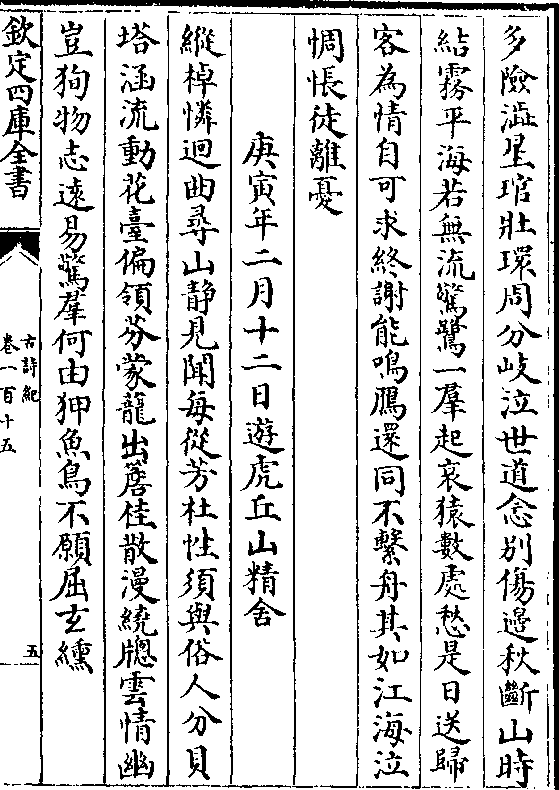 多險澁星琯壯環周分岐泣世道念别傷邉秋斷山時
結霧平海若無流驚鷺一羣起哀猿數處愁是日送歸
客為情自可求終謝能鳴鴈還同不繫舟其如江海泣
惆悵徒離憂
庚寅年二月十二日遊虎丘山精舎
縱棹憐迴曲尋山静見聞每從芳杜性須與俗人分貝
塔涵流動花臺偏領芬蒙籠出簷桂散漫繞牕雲情幽
豈狥物志遠易驚羣何由狎魚鳥不願屈玄纁
欽定四庫全書
古詩紀
卷一百十五
五